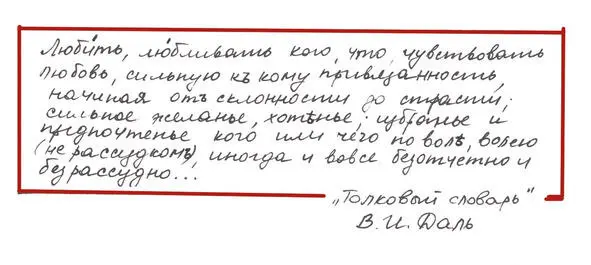 Люби́ть, любливать кого, что, чувствовать
любовь, сильную къ кому привязанность,
начиная отъ склонности до страсти;
сильное желанье, хотѣнье; избранье и
предпочтенье кого или чего по волѣ, волею
(не рассудкомъ), иногда и вовсе безотчетно и
безрассудно...
„Толковый словарь"
В. И. Даль